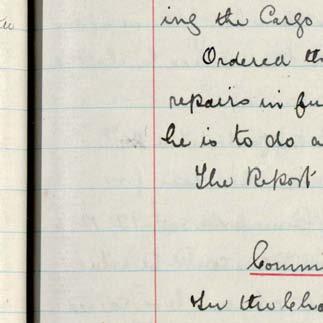 ing the Cargo
Ordered th
repairs in fu
he is to do a
The Report
Commi
In the Cha